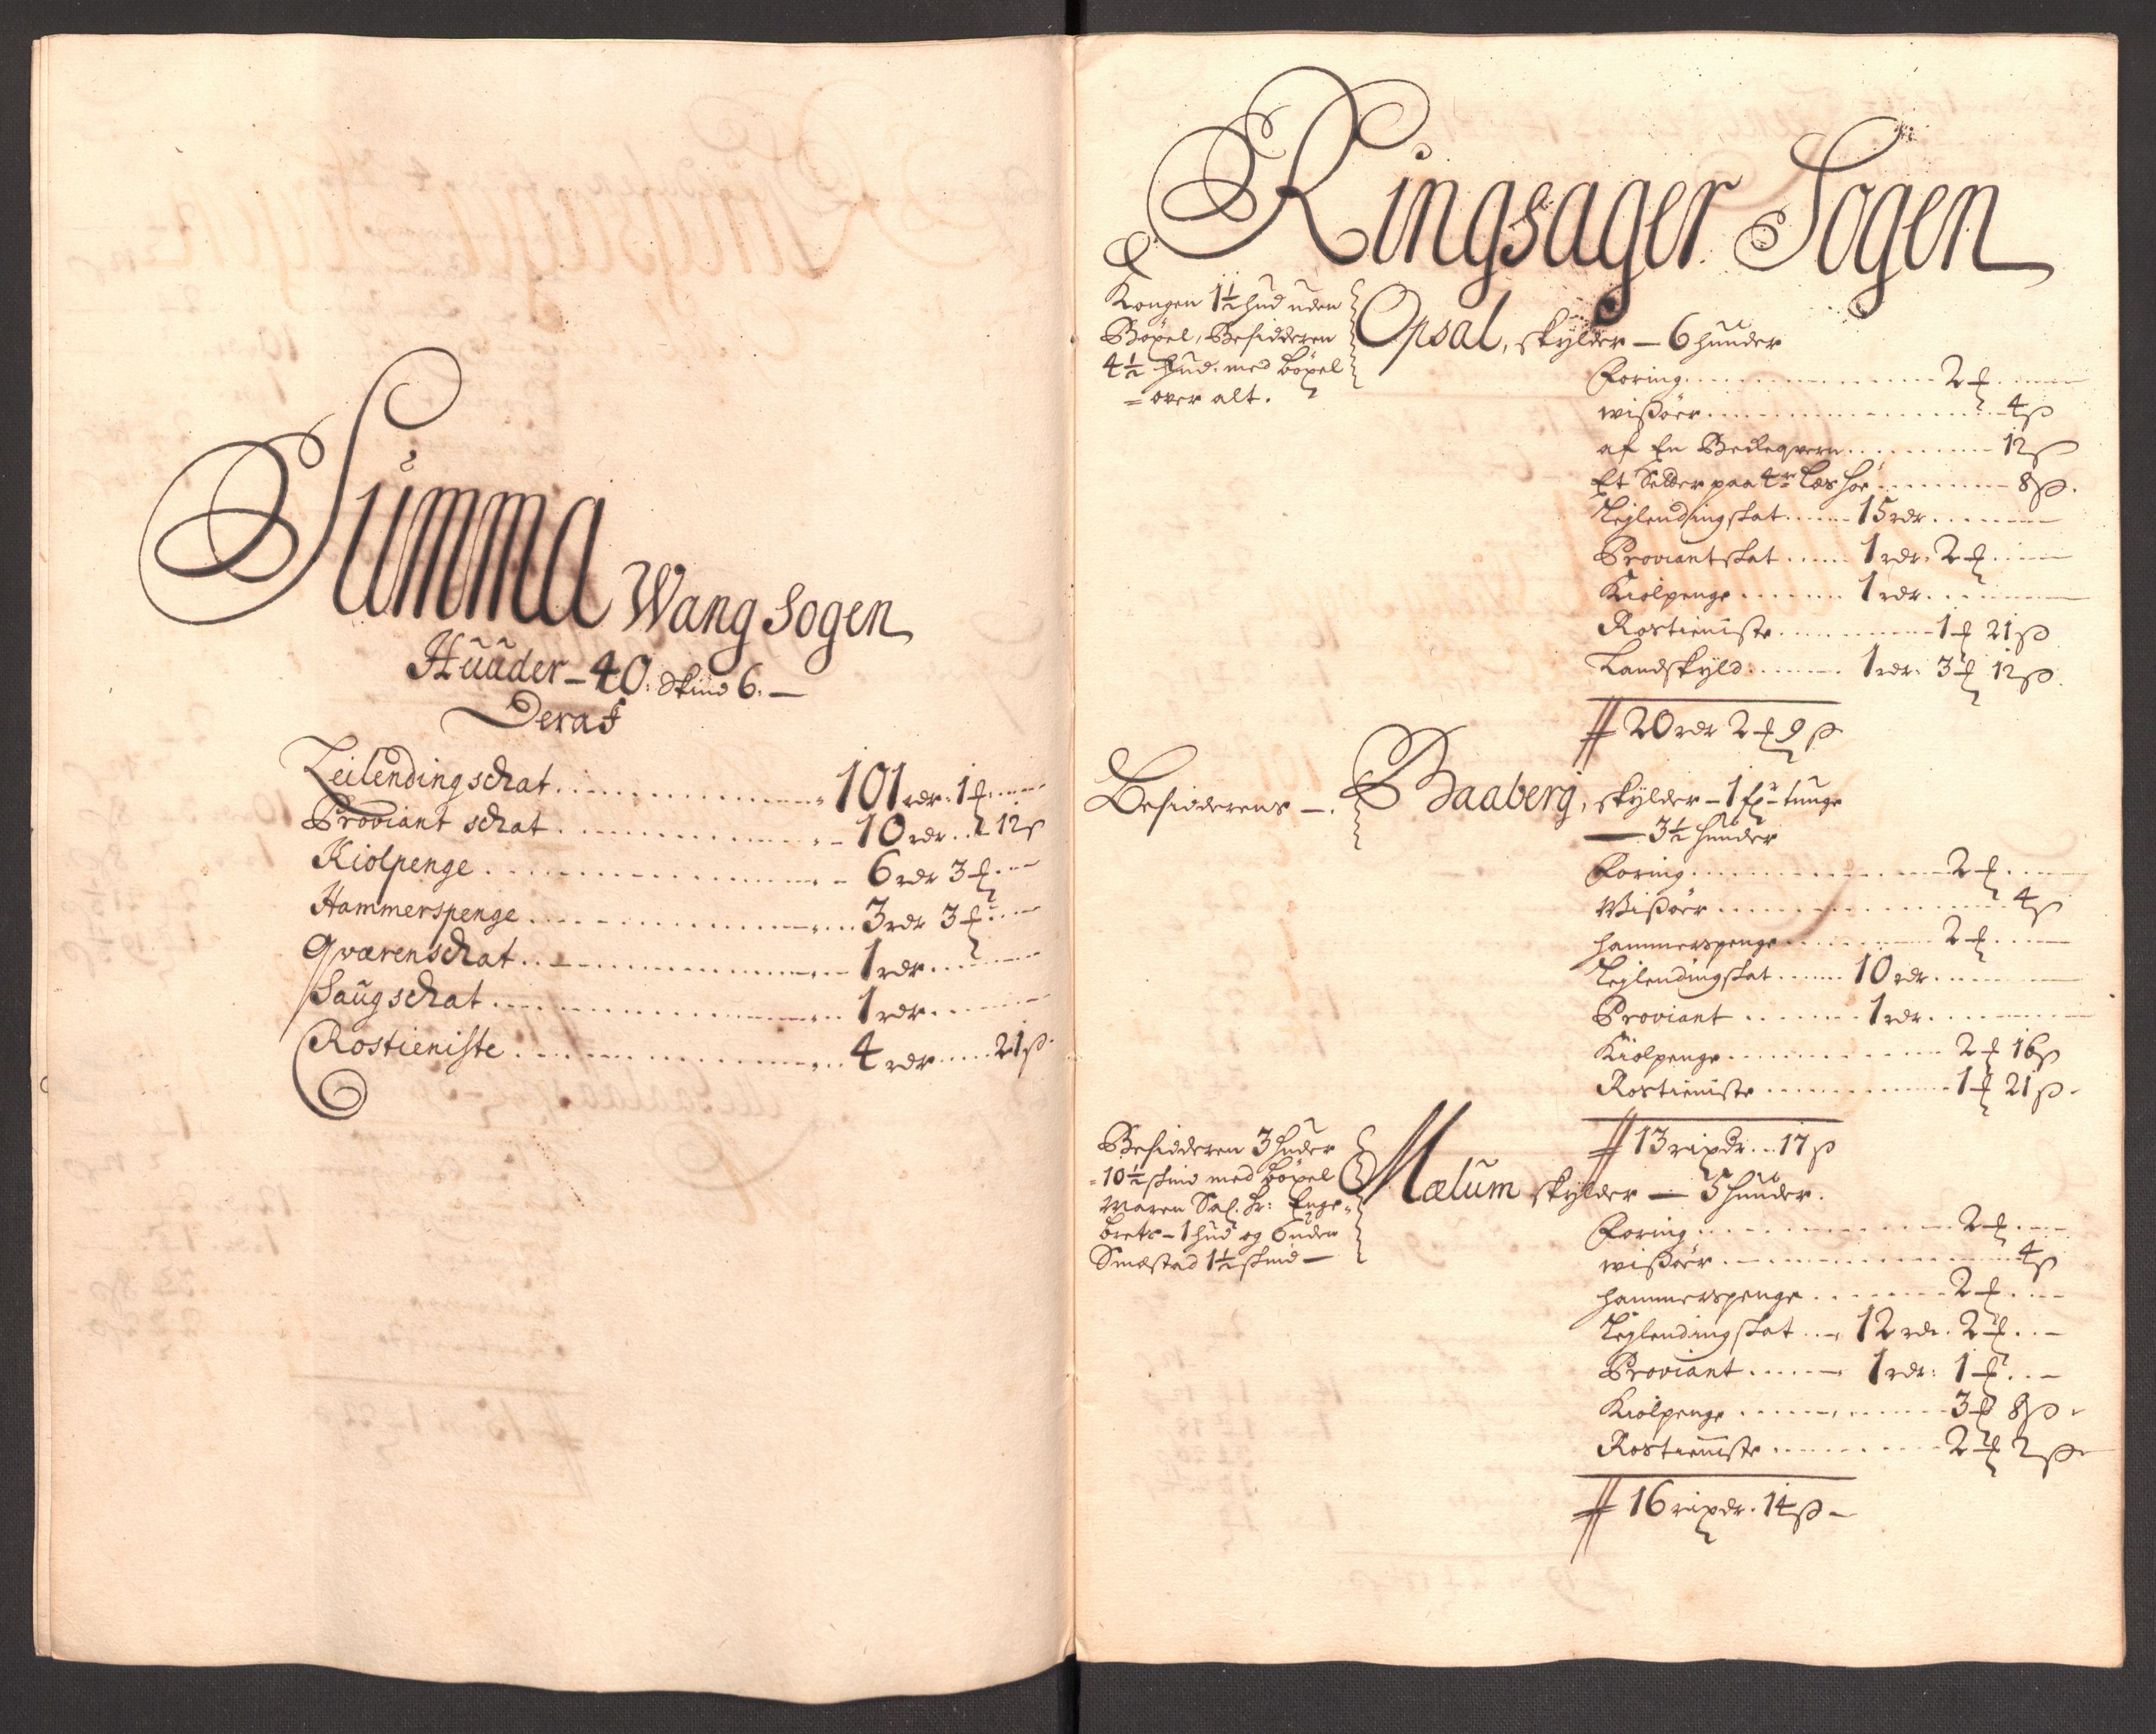 Summa Wang Sogen
Huuder – 40: Skind 6. –
Deraf
Leilending schat ........ 101 rdr: 1 ʒ
Proviant schat ........ 10 rdr .. 12 ß
Kiolpenge ........ 6 rdr 3 ʒ
Hammerspenge ........ 3 rdr 3 ʒ
Qværenschat ........ 1 rdr
Saugschat ........ 1 rdr
Rostieniste ........ 4 rdr ... 21 ß
Ringsager Sogen
Kongen 1½ hud uden
Böxel, Besidderen
4½ Hud. med böxel
= over alt.
Opsal, skylder – 6 huuder
Foring ........ 2 ʒ
wißöer ........ 4 ß
af En Beckeqvern ........ 12 ß
Et Selder paa 4re Læs höe ........ 8 ß.
Leylendingskat ...... 15 rdr
Proviantskat ..... 1 rdr. 2 ʒ
Kiolpenge ....... 1 rdr.
Rostieniste ........ 1 ʒ 21 ß
Landskyld ....... 1 rdr: 3 ʒ 12 ß.
20 rdr 2 ʒ 9 ß
Besidderens –.
Baaberg, skylder – 1 fr: tunge
— 3½ huuder
Foring ........ 2 ʒ
Wißöer ........ 4 ß
hammerspenge ........ 2 ʒ
Leylendingskat ...... 10 rdr.
Proviant ....... 1 rdr.
Kiolpenge ........ 2 ʒ 16 ß
Rostieniste ........ 1 ʒ 21 ß.
13 rixdr... 17 ß
Besidderen 3 huder
= 10½ skind med böxel
Maren Sal. Hr: Enge=
brets – 1 hud og
Smestad 1½ skind –
Mælum skylder — 5 huuder.
Foring ........ 2 ʒ
wißöer ........ 4 ß
hammerspenge ........ 2 ʒ
Leylendingskat .... 12 rdr. 2 ʒ
Proviant ...... 1 rdr: 1 ʒ
Kiolpenge ........ 3 ʒ 8 ß.
Rostieniste ........ 2 ʒ 2 ß
16 rixdr. 14 ß –